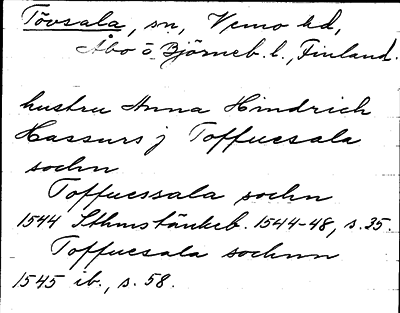 Tövsala, sn, Vemo hd,
Åbo o Björneb. l., Finland.
hustru Anna Hindrich
Hassurs j Toffuesala
sochn
Toffuessala sochn
1544 Sthmstänkeb. 1544-48, s. 35.
Toffuesala sochnn
1545 ib., s. 58.